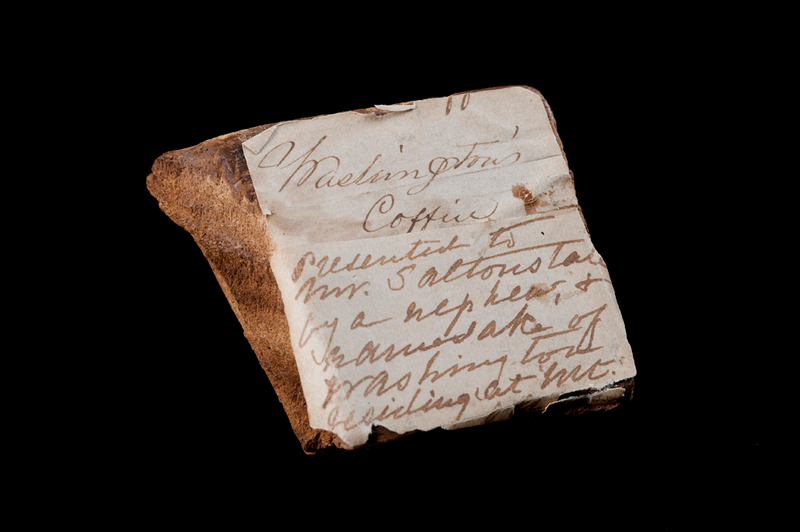 Washington's
Coffin
Presented to
Mr. Saltonstall
by a nephew, &
namesake of
Washington
residing at Mt.